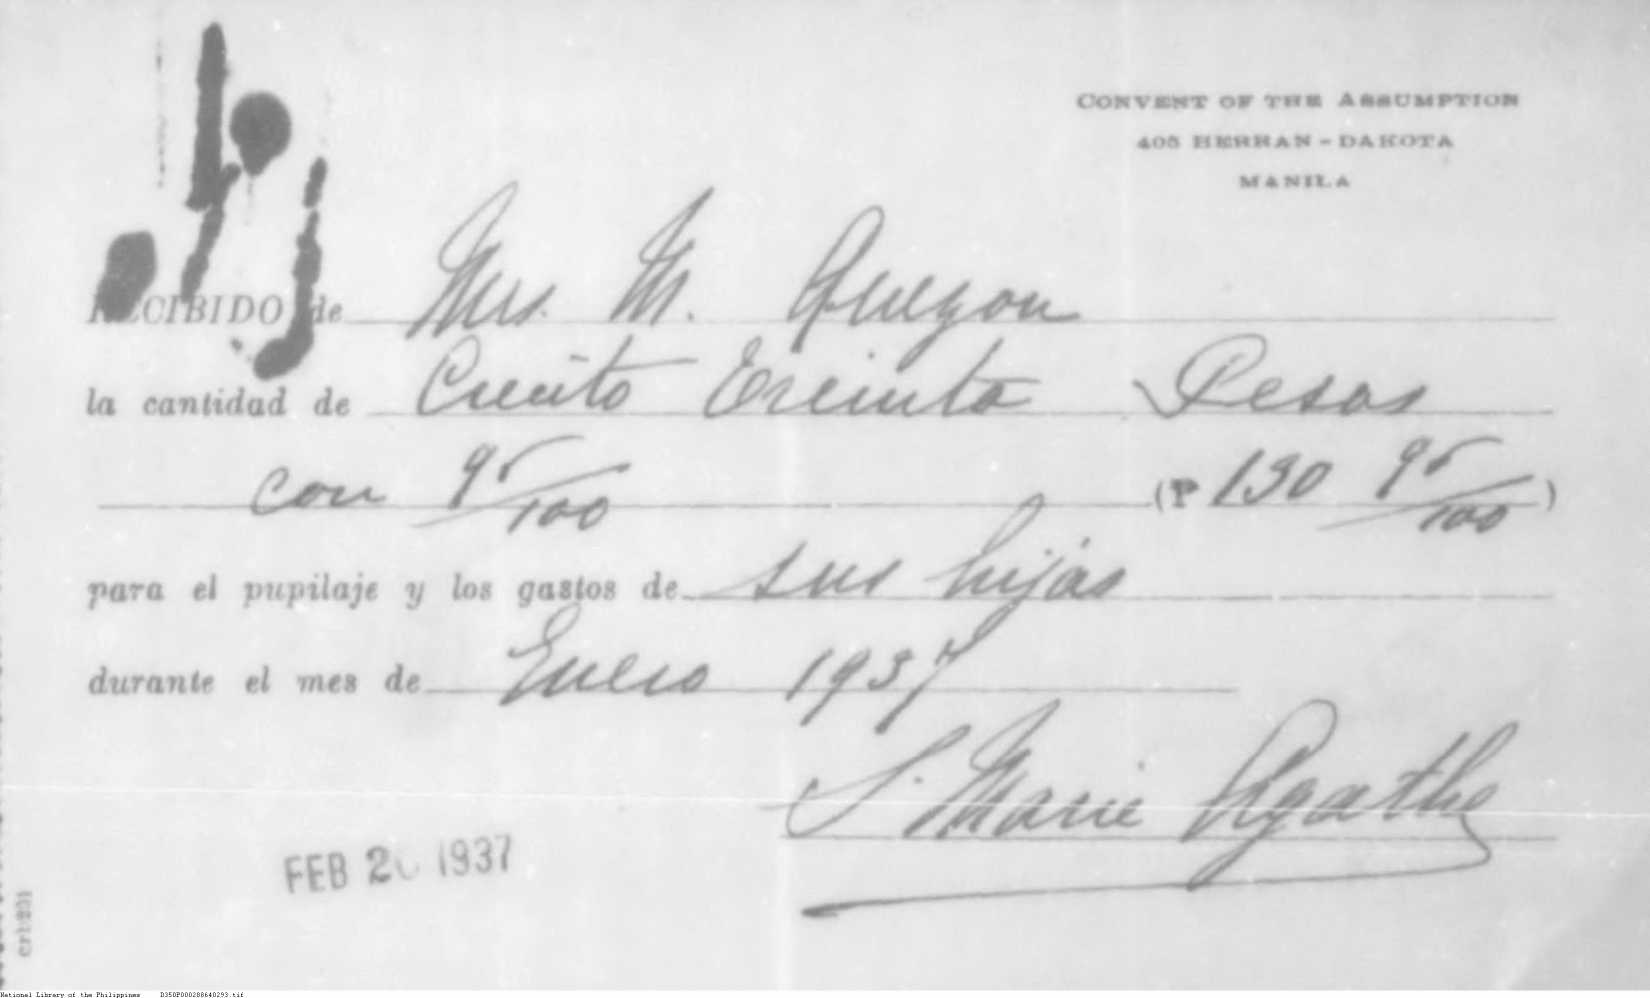 CONVENT OF THE ASSUMPTION
405 HERRAN - DAKOTA
MANILA
RECIBIDO de Mrs. M. Quezon
la cantidad de Ciento Treinta Pesos
con 95/100 (₱ 130 95/100)
para el pupilaje y los gastos de sus hijas
durante el mes de Enero 1937
S. Marie Agathe
FEB 1937
National Library of the Philippines D350P000288640293.tif